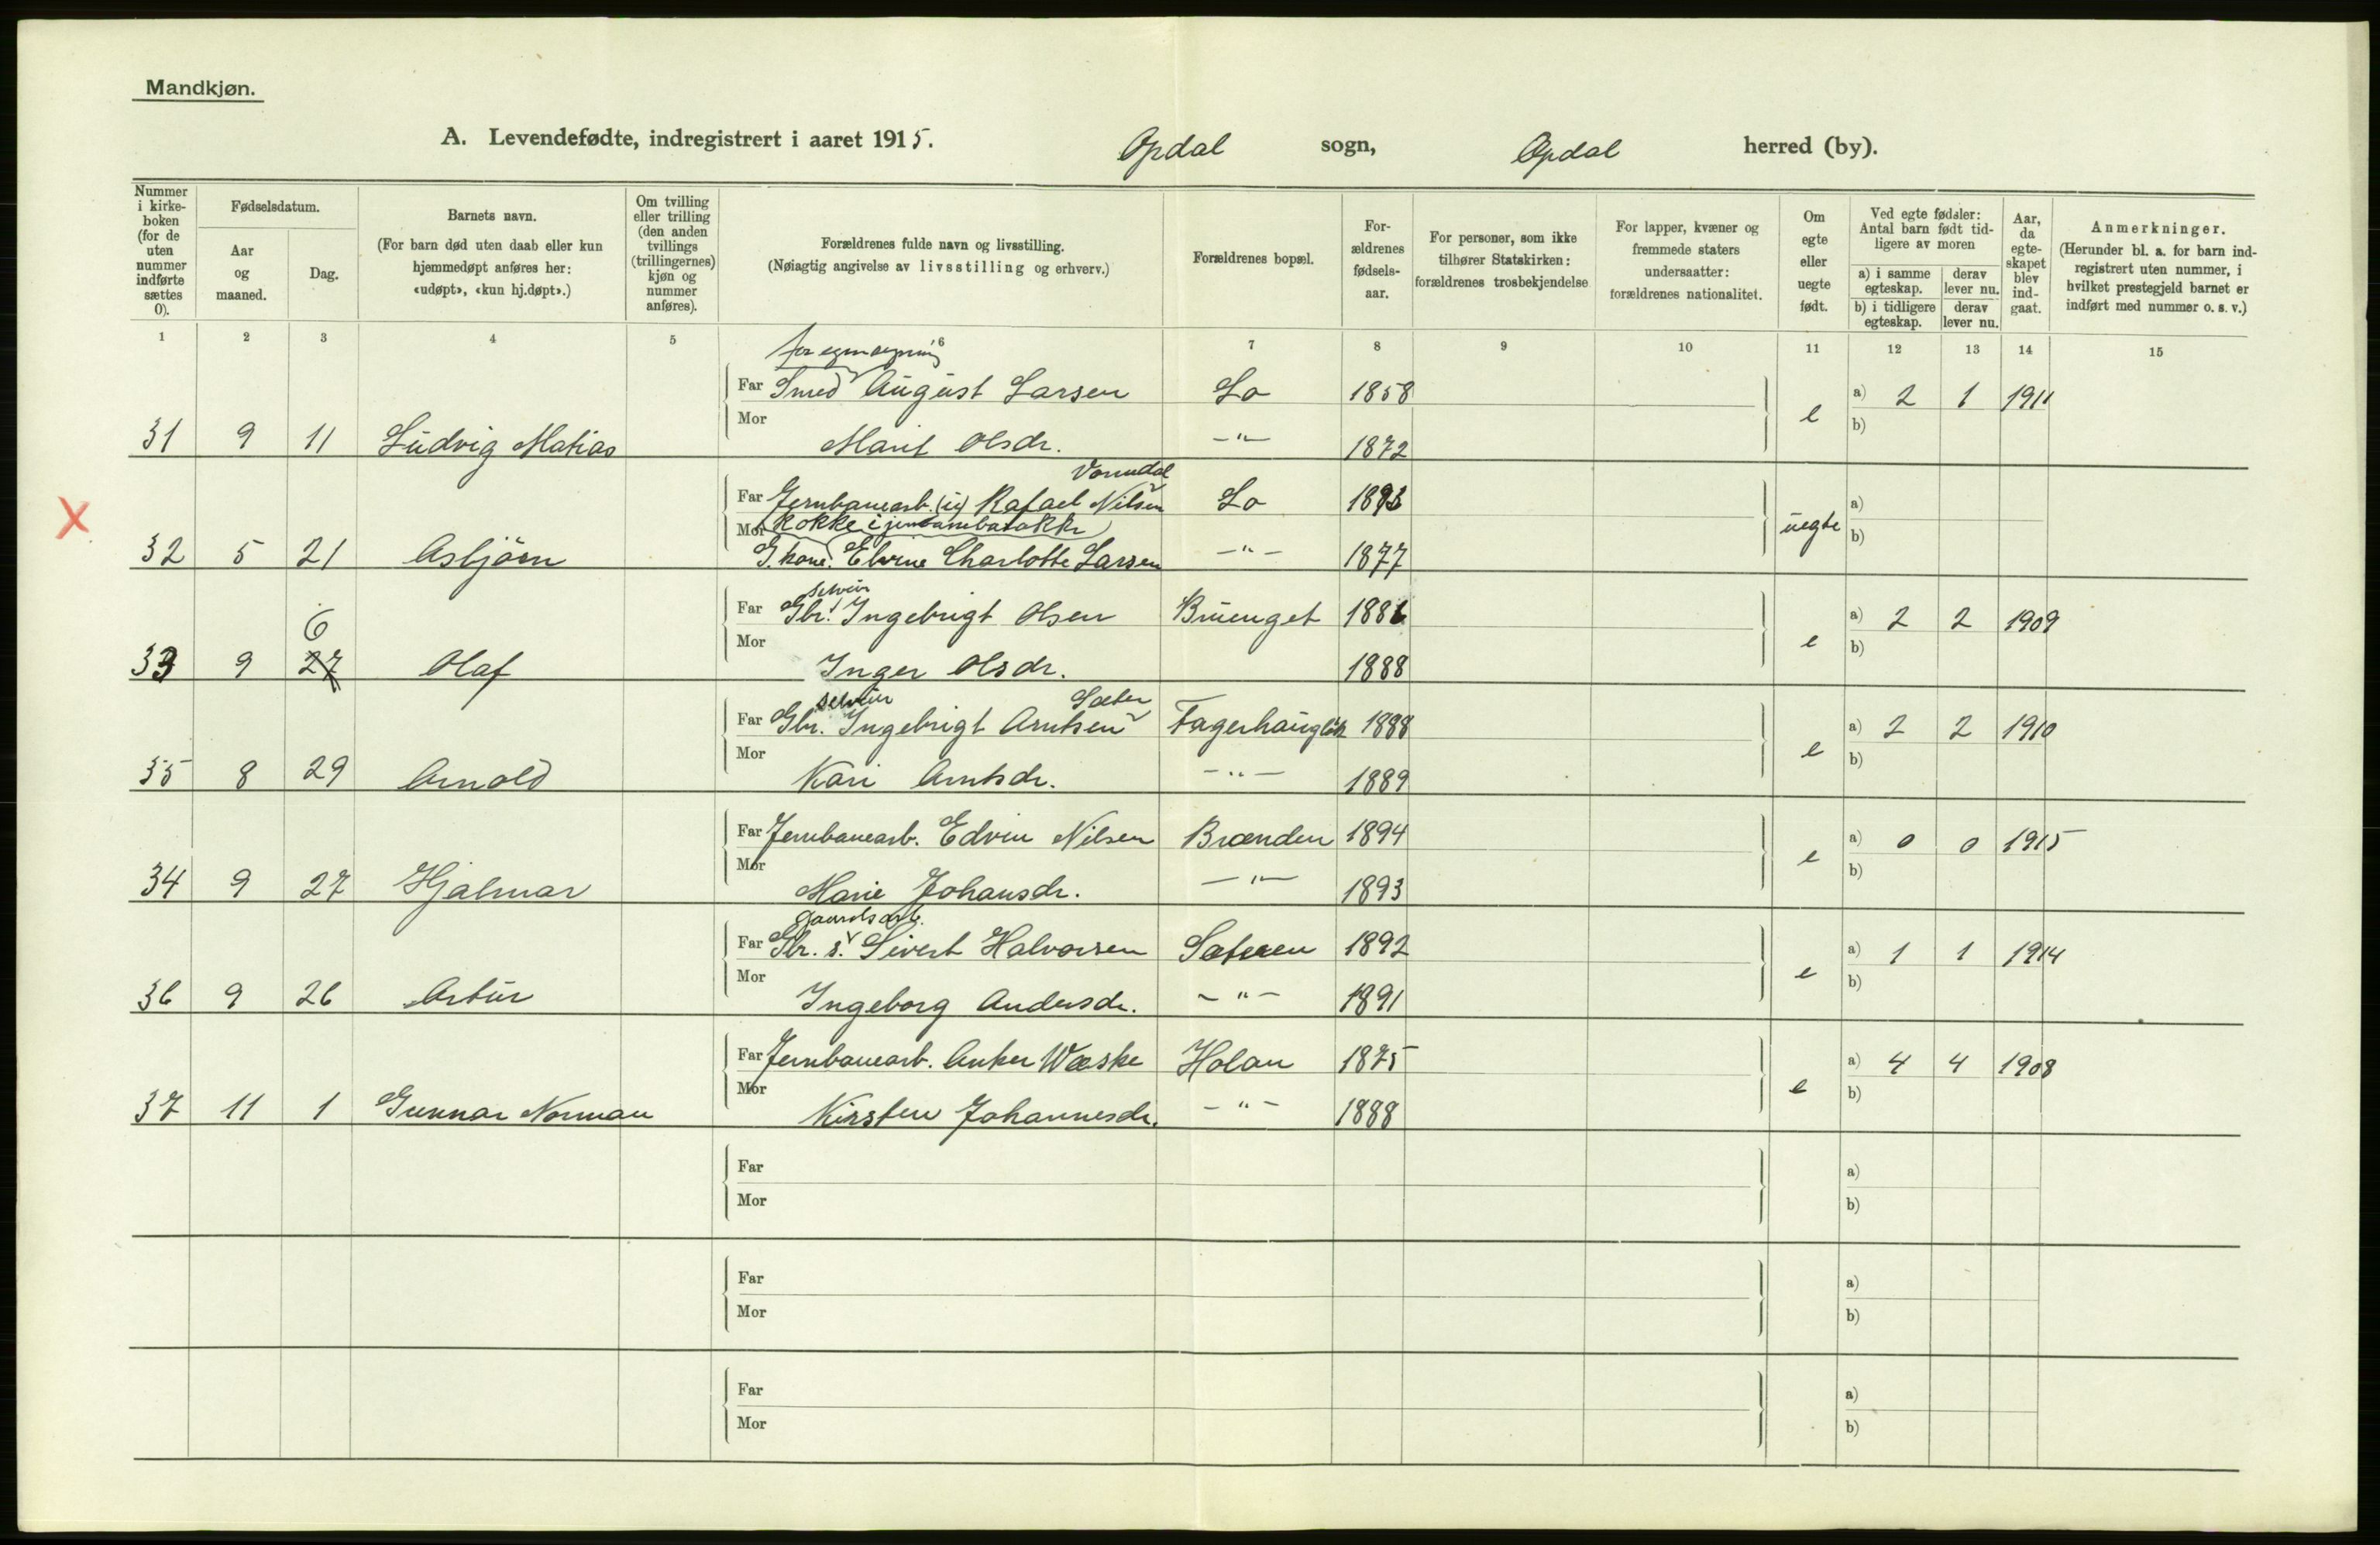 Mandkjøn.
A. Levendefødte, indregistrert i aaret 1915. Opdal sogn, Opdal herred (by).
Nummer i kirkeboken (for de uten nummer indførte sættes 0).
Fødselsdatum.
Aar og maaned.
Dag.
Barnets navn.
(For barn død uten daab eller kun hjemmedøpt anføres her: «udøpt», «kun hj.døpt».)
Om tvilling eller trilling (den anden tvillings (trillingernes) kjøn og nummer anføres).
Forældrenes fulde navn og livsstilling.
(Nøiagtig angivelse av livsstilling og erhverv.)
Forældrenes bopæl.
Forældrenes fødselsaar.
For personer, som ikke tilhører Statskirken: forældrenes trosbekjendelse
For lapper, kvæner og fremmede staters undersaatter: forældrenes nationalitet.
Om egte eller uegte født.
Ved egte fødsler: Antal barn født tidligere av moren
a) i samme egteskap.
derav lever nu.
b) i tidligere egteskap.
derav lever nu.
Aar, da egteskapet blev indgaat.
Anmerkninger.
(Herunder bl. a. for barn indregistrert uten nummer, i hvilket prestegjeld barnet er indført med nummer o. s. v.)
1 2 3 4 5 6 7 8 9 10 11 12 13 14 15
for egen regning
Far Smed August Larsen Lo 1858 e a) 2 1 1911
Mor b)
31 9 11 Ludvig Matias Marit Olsdr. -"- 1872
Vonndal
Far Jernbanearb. (u) Rafael Nilsen Lo a)
X Mor kokke i uegte b)
32 5 21 Asbjörn G. kone. Elvine Charlotte Larsen -"- 1877
selvei
Far Gbr. Ingebrigt Olsen Bruenget a) 2 2 1909
6
Mor e b)
33 9 27 Olaf Inger Olsdr. 1888
selveier Sæter
Far Gbr. Ingebrigt Arntsen 1888 a) 2 2 1910
Mor e b)
35 8 29 Arnold Kari Arntsdr. -"- 1889
Far Jernbanearb. Edvin Nilsen Brænden 1894 a) 0 0 1915
Mor e b)
34 9 27 Hjalmar Marie Johansdr. -"- 1893
gaardsarb.
Far Gbr. s. Sivert Halvorsen Sæteren 1892 a) 1 1 1914
Mor e b)
36 9 26 Artur Ingeborg Andersdr. -"- 1891
Far Jernbanearb. Anker Wæske Holan 1875 a) 4 4 1908
Mor e b)
37 11 1 Gunnar Norman Kirsten Johannesdr. -"- 1888
Far a)
Mor b)
Far a)
Mor b)
Far a)
Mor b)